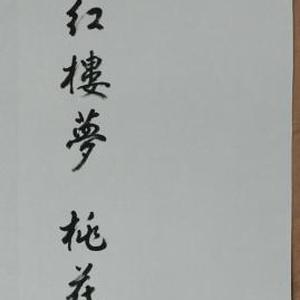 红樓夢 桃花